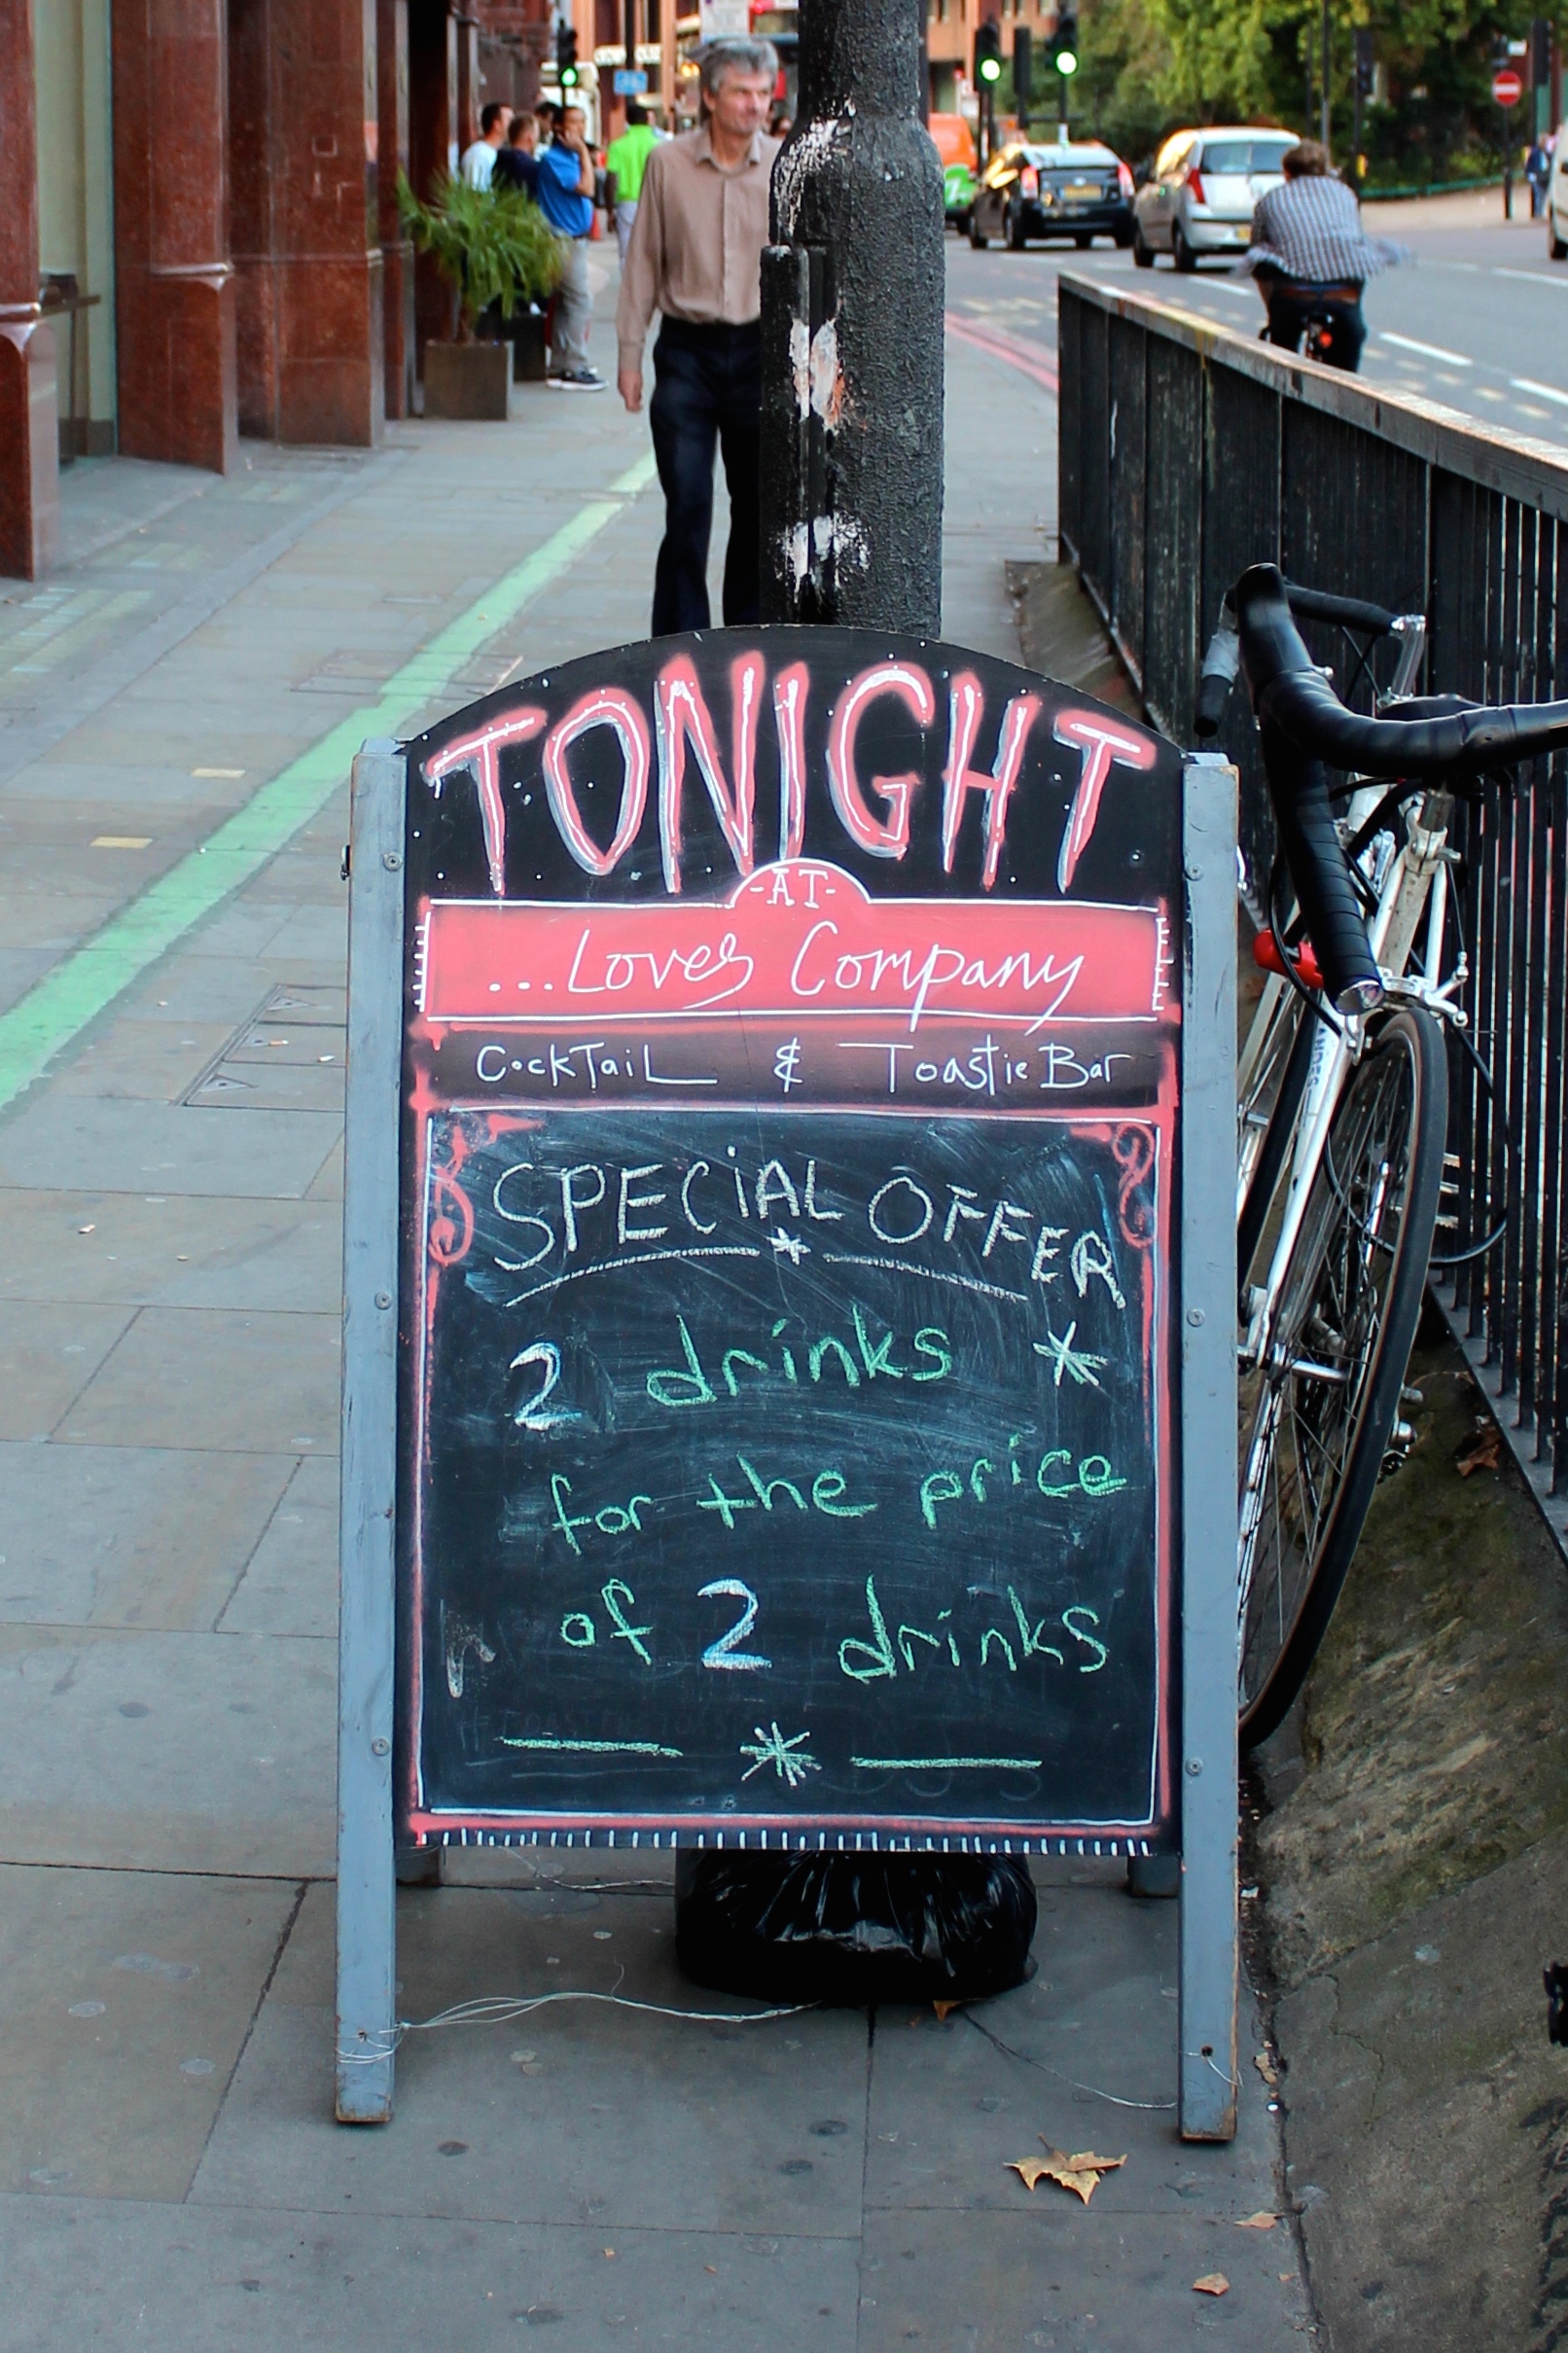 TONIGHT
-AT-
...Loves Company
CockTail & Toastie Bar
SPECiAL OFFER
2 drinks *
for the price
of 2 drinks